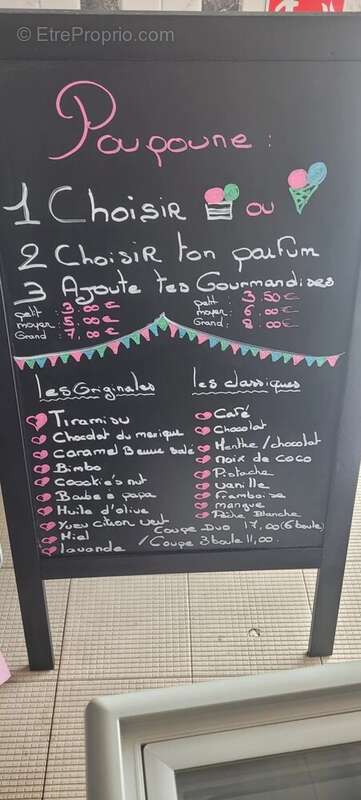 © EtreProprio.com
Poupoune :
1 Choisir ou
2 Choisir ton parfum
3 Ajoute tes Gourmandises
petit : 3.00€
moyen : 5.00€
Grand : 7.00€
petit : 3.50€
moyen : 6.00€
Grand : 8.00€
Les Originales
Tiramisu
Chocolat du mexique
Caramel Beurre Salé
Bimbo
Coookie's nut
Barbe à papa
Huile d'olive
Yuzu citron vert
Miel
lavande
les classiques
Café
Chocolat
Menthe/chocolat
noix de coco
Pistache
Vanille
Framboise
mangue
Pêche Blanche
Coupe Duo 17,00 (6 boule)
/Coupe 3 boule 11,00.